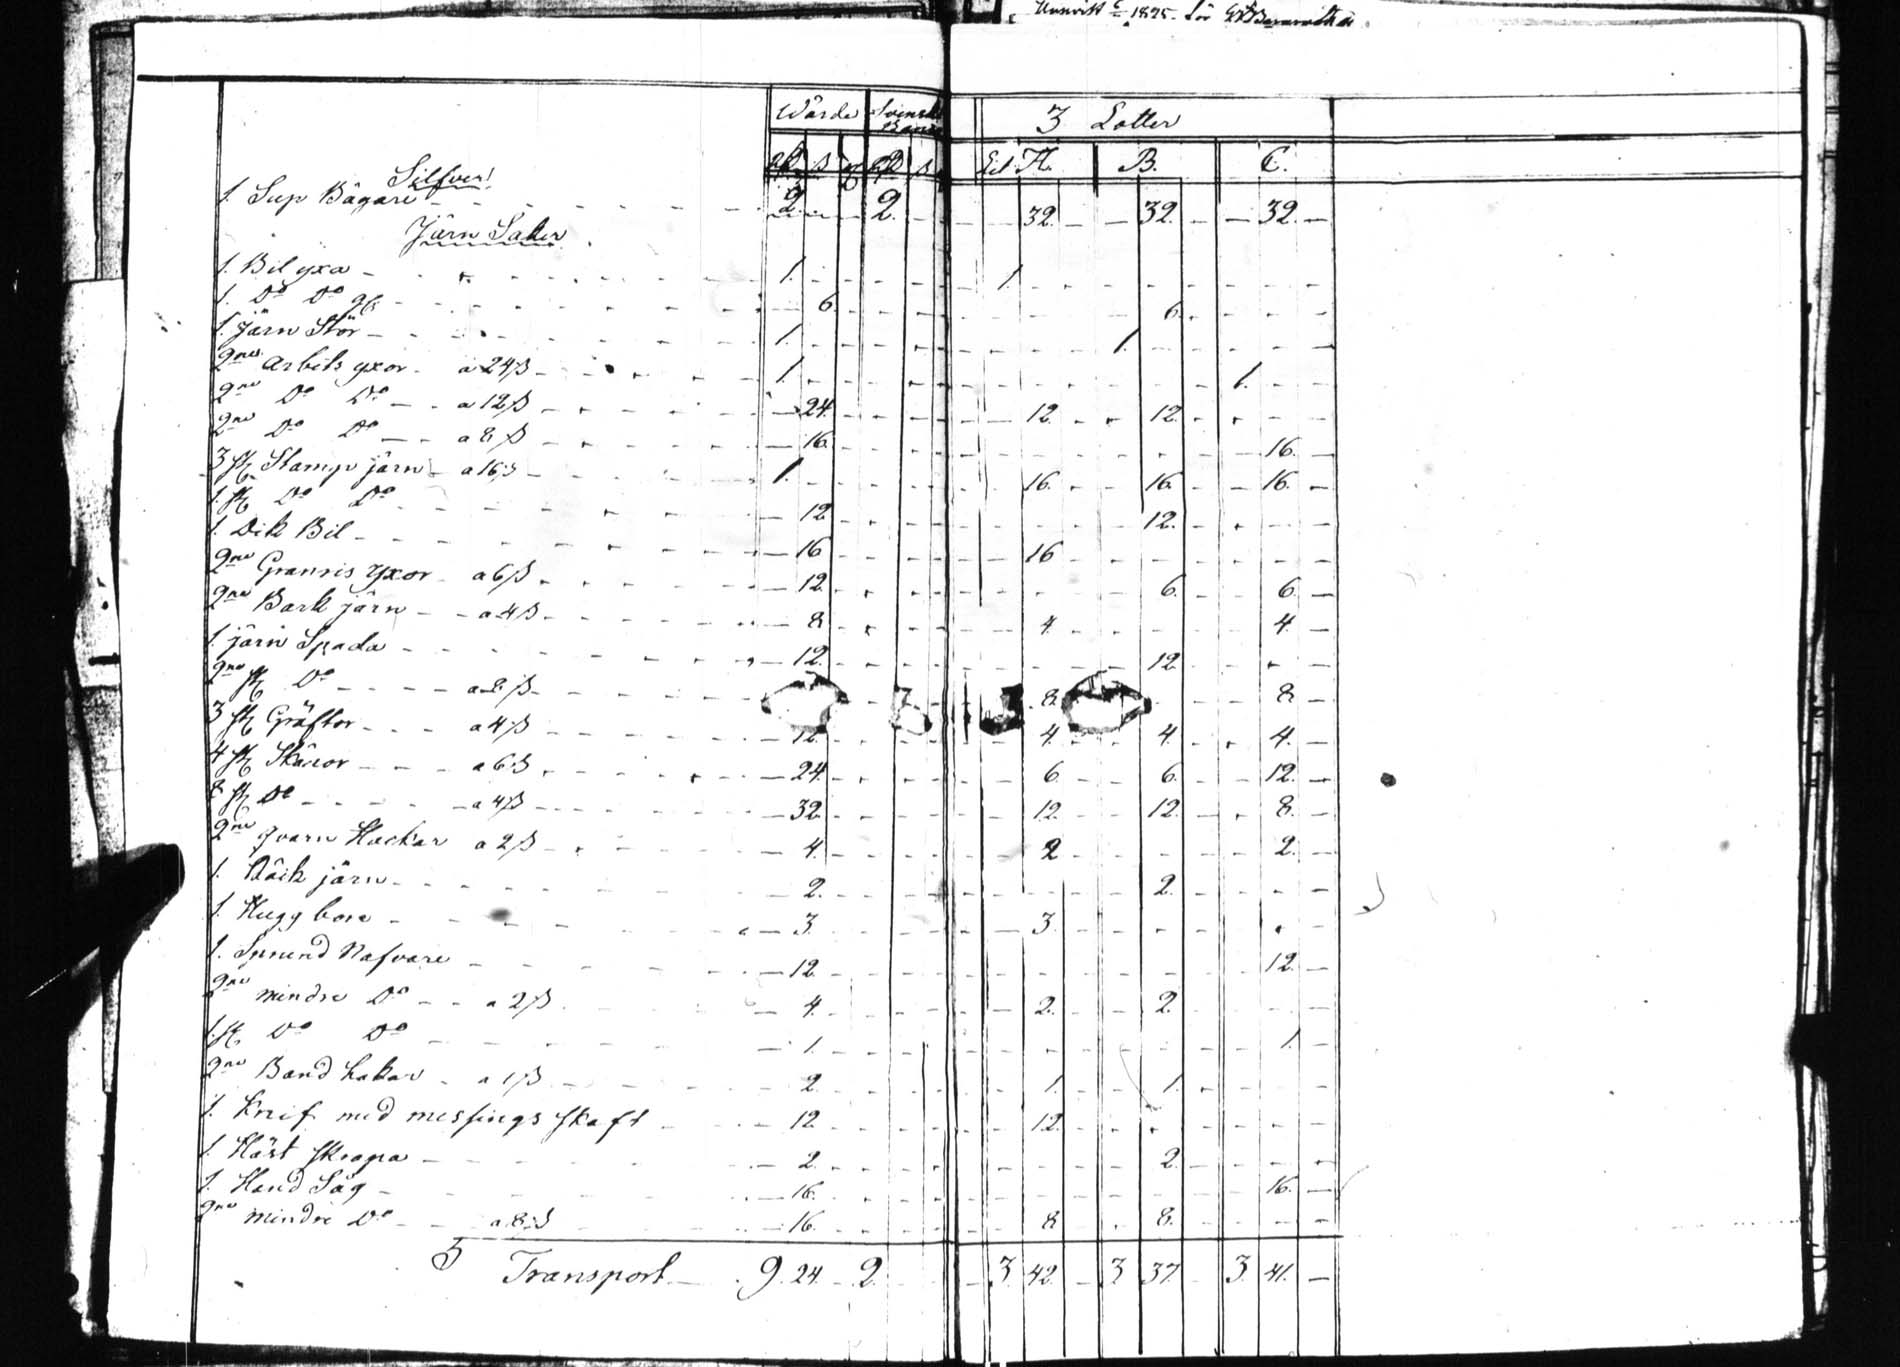 1825. för
Wärde Svensk Banco
3 Lotter
A. B. C.
Silfver
1. Sup Bägare 2. 2. 32. 32. 32.
Järn Saker
1. Bil yxa 1. 1.
1. Do Do 6. 6.
1 Järn Stör 1. 1.
2ne arbets yxor a 24ß 1. 1.
2ne Do Do a 12ß 24. 12. 12.
2ne Do Do a 8ß 16. 16.
3 st Stamp järn a 16ß 1. 16. 16. 16.
1. st Do Do 12 12.
1. Dik Bil 16 16
2ne Granris yxor a 6ß 12. 6. 6.
2ne Bark järn a 4ß 8 4. 4.
1. järn Spada 12. 12.
2ne st Do a 8ß 8. 8.
3 st Gräftor a 4ß 12. 4. 4. 4.
4 st Skäror a 6ß 24. 6. 6. 12.
8 st Do a 4ß 32. 12. 12. 8.
2ne qvarn Hackar a 2ß 4. 2 2.
1. järn 2. 2.
1. Hugg bore 3. 3.
1. Spund Nafvare 12. 12.
2ne mindre Do a 2ß 4. 2. 2.
1. st Do Do 1. 1.
2ne Band hakar a 1ß 2. 1. 1.
1. Knif med messings skaft 12. 12.
1. Häst skrapa 2. 2.
1. Hand Såg 16. 16.
2ne mindre Do a 8ß 16. 8 8.
Transport 9. 24. 2. 3. 42. 3 37. 3. 41.